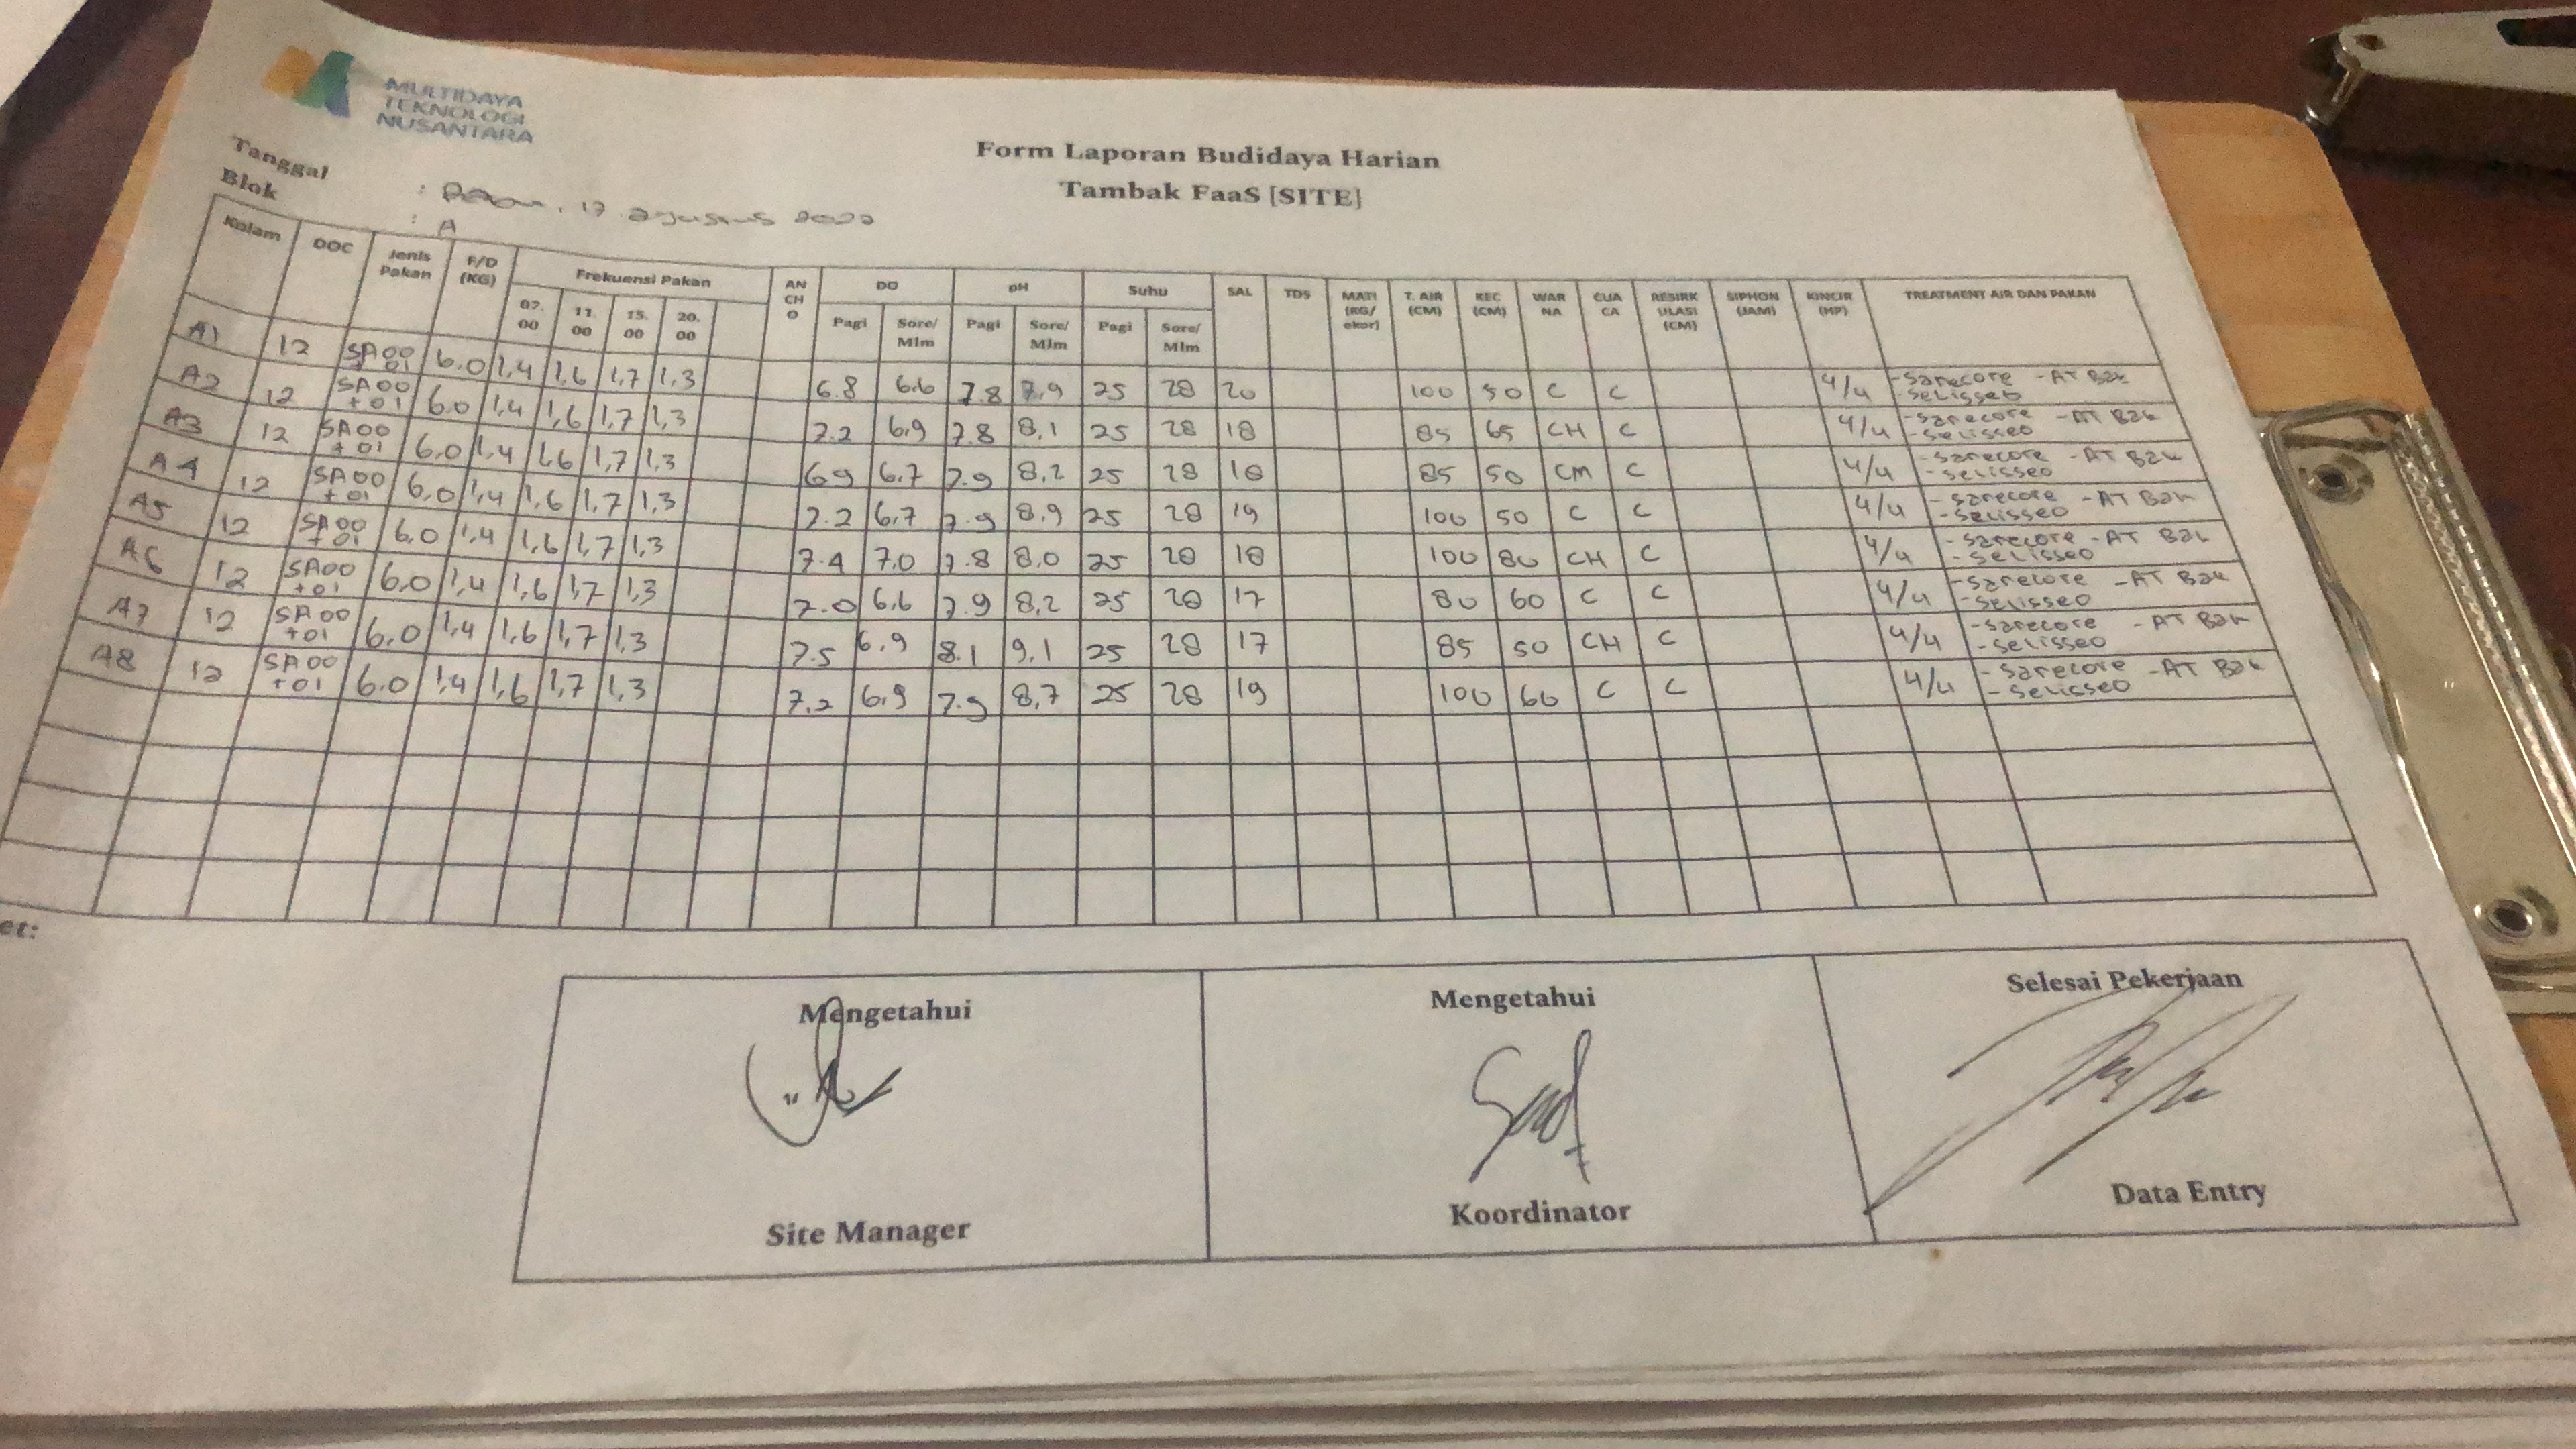 MULTIDAYA
TEKNOLOGI
NUSANTARA
Form Laporan Budidaya Harian
Tambak FaaS [SITE]
Tanggal :
Blok : A
Kolam DOC Jenis Pakan F/D (KG) Frekuensi Pakan 07.00 11.00 15.00 20.00 ANCHO DO Pagi Sore/Mlm pH Pagi Sore/Mlm Suhu Pagi Sore/Mlm SAL TDS MATI (KG/ekor) T. AIR (CM) KEC (CM) WARNA CUACA RESIRKULASI (CM) SIPHON (JAM) KINCIR (HP) TREATMENT AIR DAN PAKAN
A1 12 SA 00 + 01 6.0 1,4 1,6 1,7 1,3 6.8 6.6 7.8 7.9 25 28 20 100 50 C C 4/4 - sanecore - selisseo - AT Bak
A2 12 SA 00 + 01 6.0 1,4 1,6 1,7 1,3 7.2 6.9 7.8 8,1 25 28 18 85 65 CH C 4/4 - sanecore - selisseo - AT Bak
A3 12 SA 00 + 01 6.0 1,4 1,6 1,7 1,3 6.9 6.7 7.9 8,2 25 28 18 85 50 CM C 4/4 - sanecore - selisseo - AT Bak
A4 12 SA 00 + 01 6.0 1,4 1,6 1,7 1,3 7.2 6.7 7.9 8.9 25 28 19 100 50 C C 4/4 - sanecore - selisseo - AT Bak
A5 12 SA 00 + 01 6.0 1,4 1,6 1,7 1,3 7.4 7.0 7.8 8.0 25 28 18 100 80 CH C 4/4 - sanecore - selisseo - AT Bak
A6 12 SA 00 + 01 6.0 1,4 1,6 1,7 1,3 7.0 6.6 7.9 8,2 25 28 17 80 60 C C 4/4 - sanecore - selisseo - AT Bak
A7 12 SA 00 + 01 6.0 1,4 1,6 1,7 1,3 7.5 6.9 8.1 9,1 25 28 17 85 50 CH C 4/4 - sanecore - selisseo - AT Bak
A8 12 SA 00 + 01 6.0 1,4 1,6 1,7 1,3 7.2 6.9 7.9 8,7 25 28 19 100 60 C C 4/4 - sanecore - selisseo - AT Bak
et:
Mengetahui Mengetahui Selesai Pekerjaan
Site Manager Koordinator Data Entry